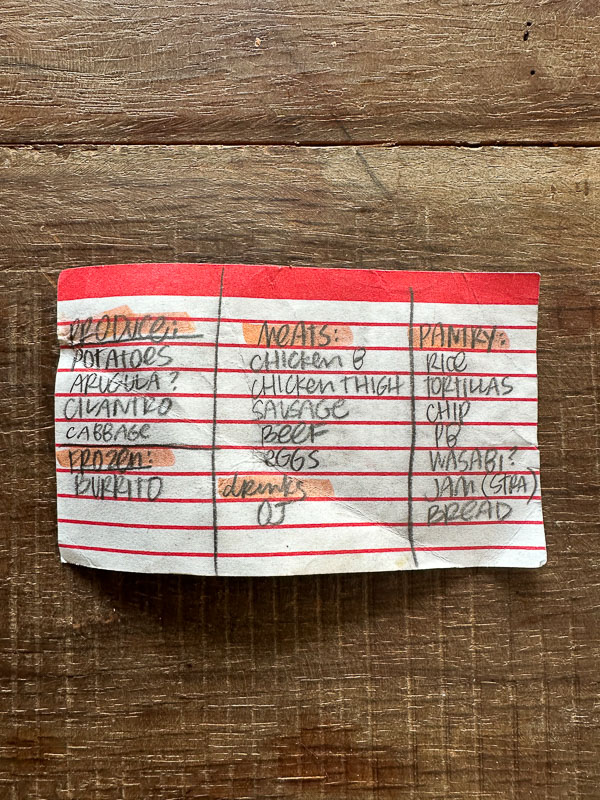 PRODUCE:
POTATOES
ARUGULA?
CILANTRO
CABBAGE
FROZEN:
BURRITO
MEATS:
CHICKEN B
CHICKEN THIGH
SAUSAGE
BEEF
EGGS
drinks
OJ
PANTRY:
RICE
TORTILLAS
CHIP
PB
WASABI?
JAM (STRA)
BREAD